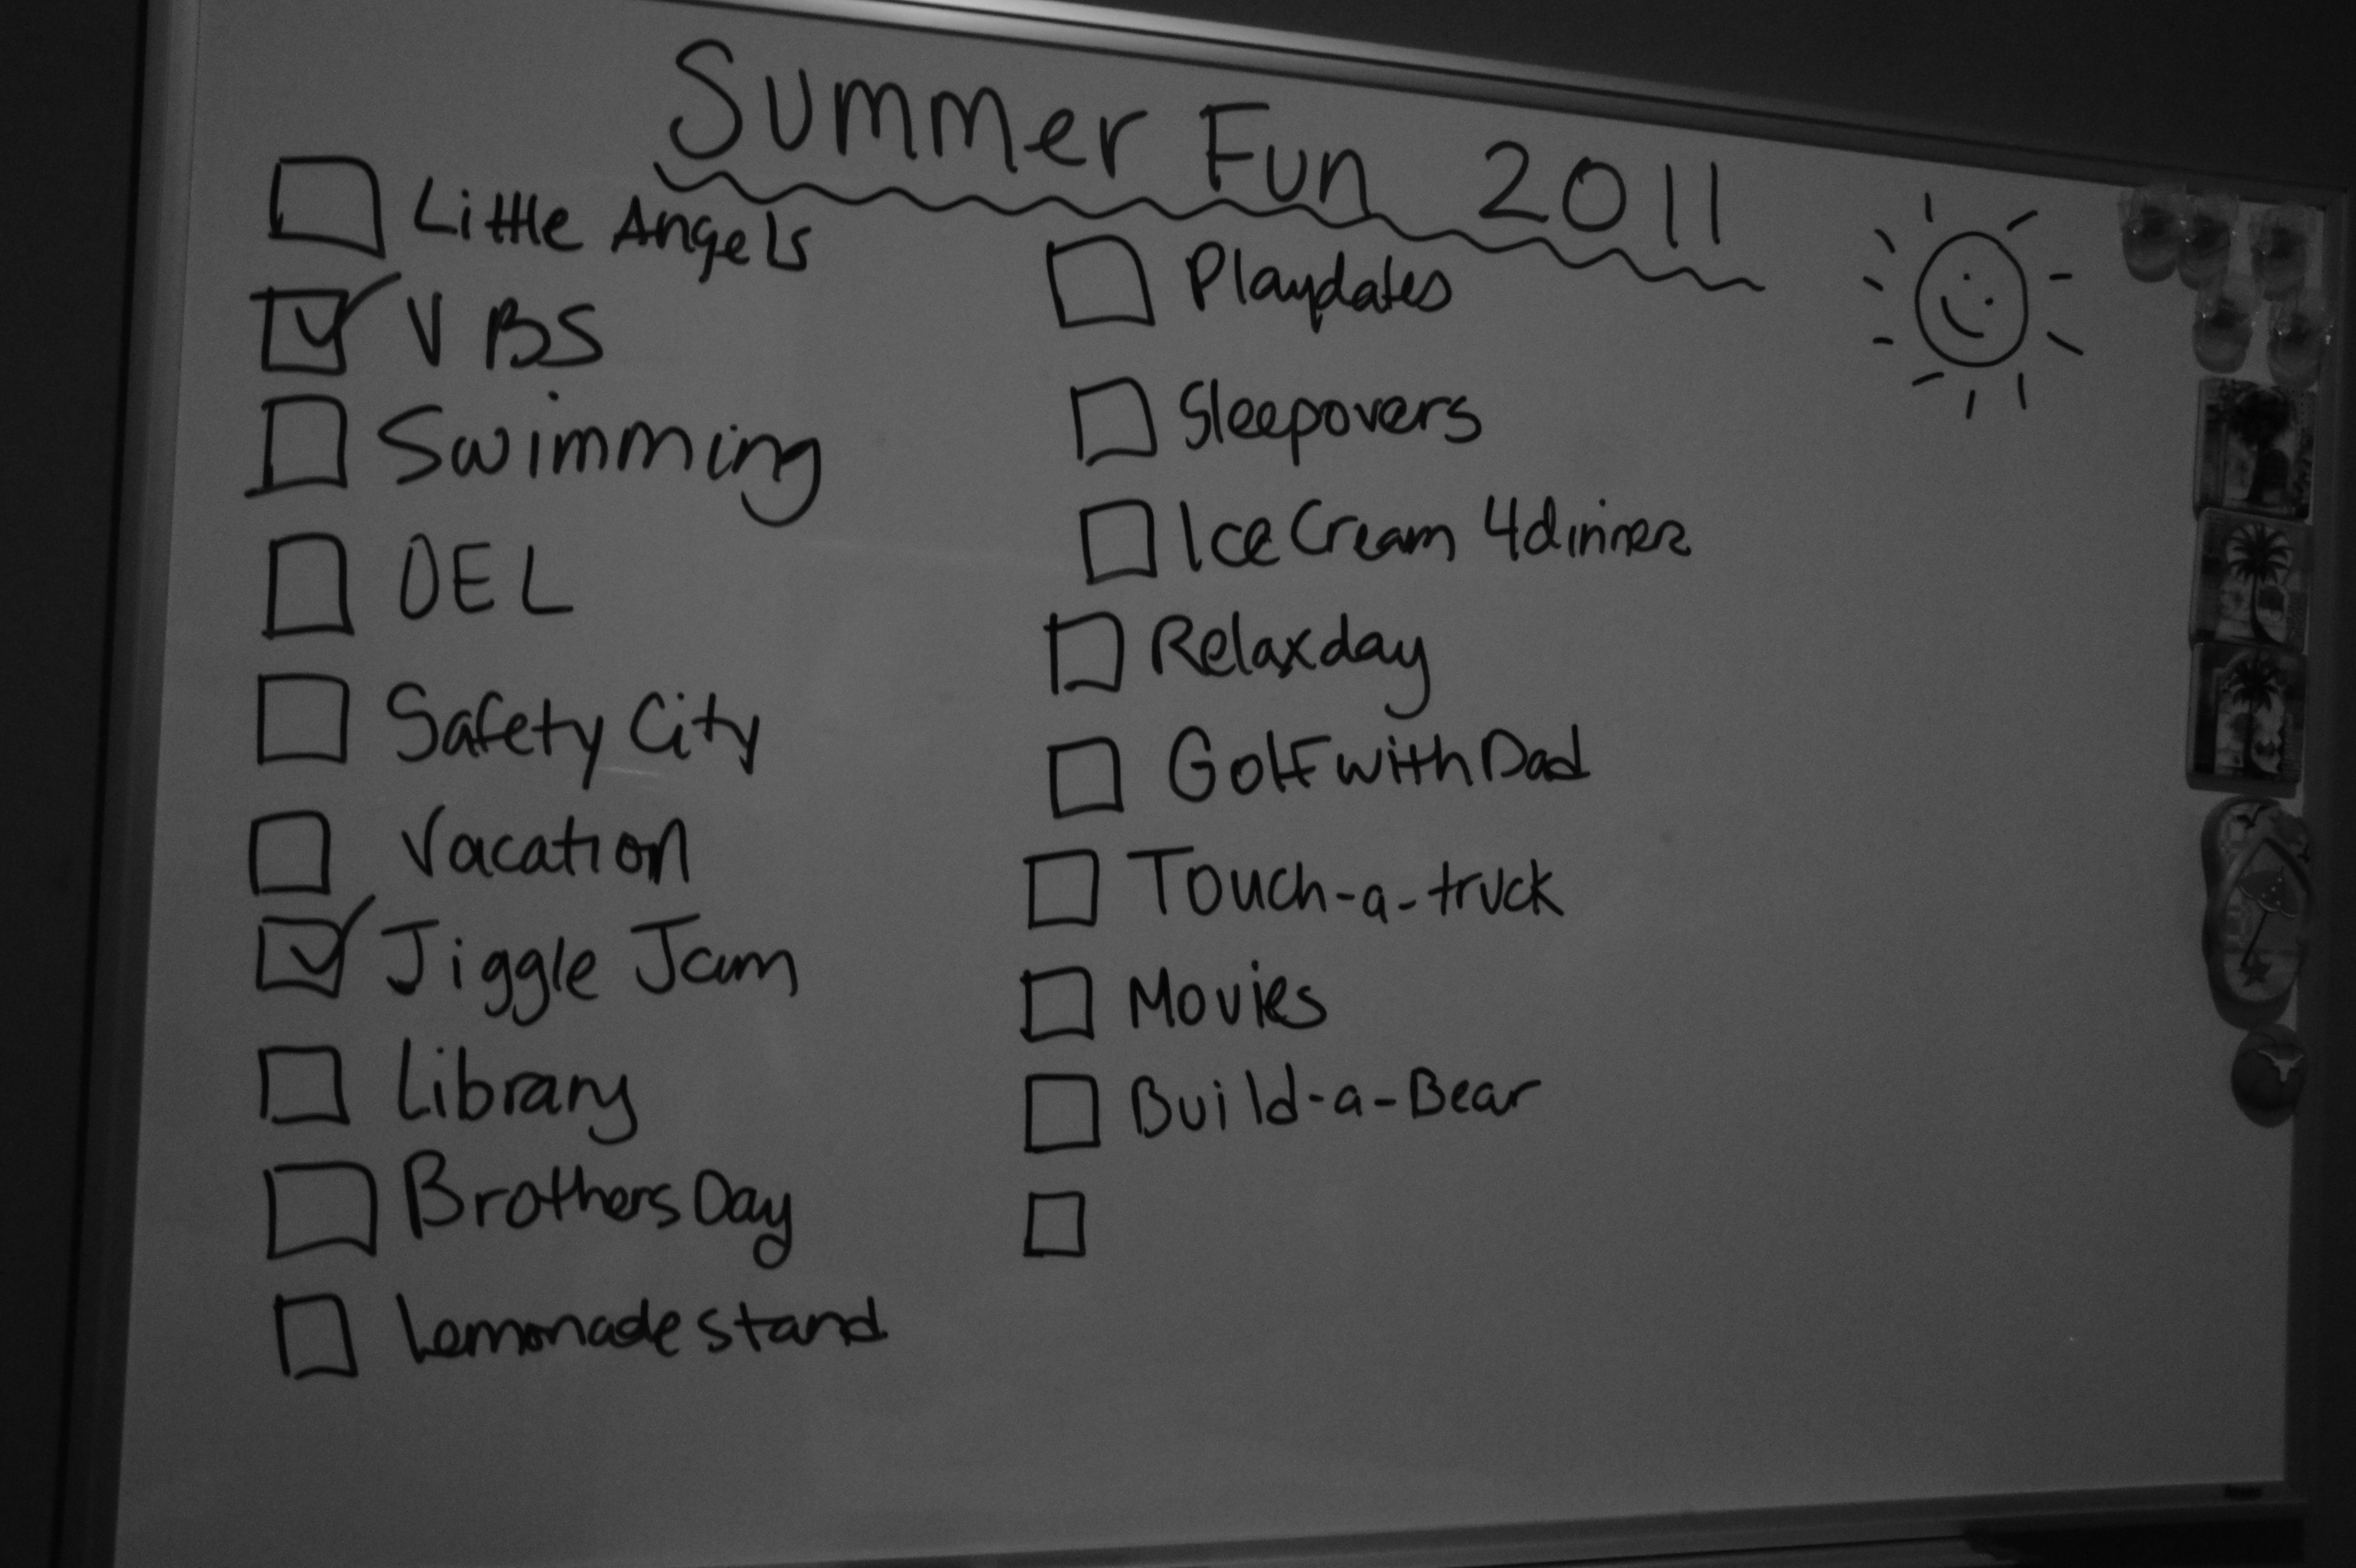 Summer Fun 2011
Little Angels
VBS
Swimming
OEL
Safety City
Vacation
Jiggle Jam
Library
Brothers Day
Lemonade stand
Playdates
Sleepovers
Ice Cream 4 dinner
Relax day
Golf with Dad
Touch-a-truck
Movies
Build-a-Bear